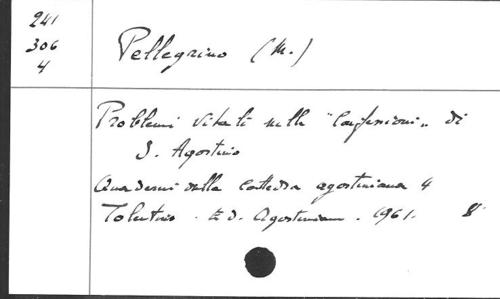 241
306
4
Pellegrino (M.)
Problemi vitali nelle "Confessioni" di
S. Agostino
Quaderni della Cattedra agostiniana 4
Tolentino. Ed. Agostiniana. 1961. 8°